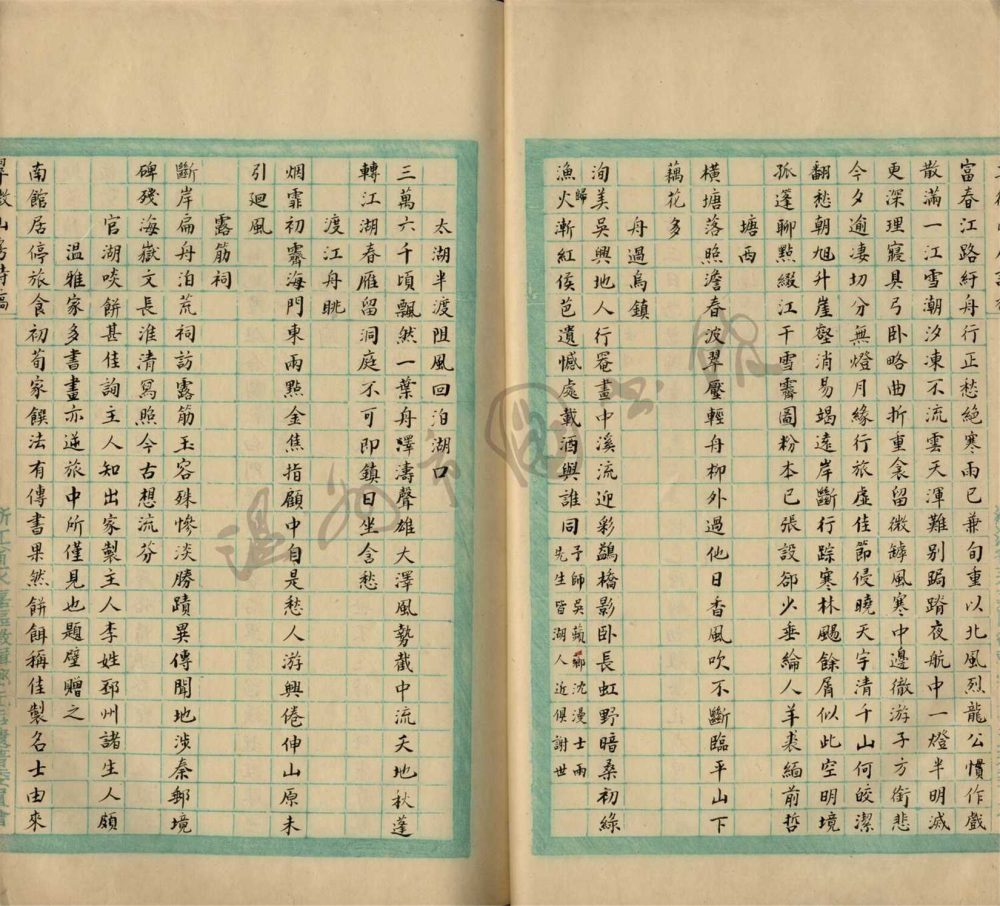 富春江路紆舟行正愁絕寒雨已兼旬重以北風烈龍公慣作戲
散滿一江雪潮汐凍不流雲天渾難別跼蹐夜航中一燈半明滅
更深理寢具弓卧略曲折重衾留微罅風寒中邊徹游子方銜悲
今夕逾凄切分無燈月緣行旅虛佳節侵曉天宇清千山何皎潔
翻愁朝旭升崖壑消易竭遠岸斷行踪寒林颺餘屑似此空明境
孤蓬聊點綴江干雪霽圖粉本已張設郤少垂綸人羊裘緬前哲
塘西
橫塘落照澹春波翠壓輕舟柳外過他日香風吹不斷臨平山下
藕花多
舟過烏鎮
洵美吳興地人行罨畫中溪流迎彩鷁橋影卧長虹野暗桑初綠
漁歸火漸紅侯芭遺憾處載酒與誰同子師吳蘋鄉沈漫士兩
先生皆湖人近俱謝世
太湖半渡阻風回泊湖口
三萬六千頃飄然一葉舟澤濤聲雄大澤風勢截中流天地秋蓬
轉江湖春雁留洞庭不可即鎮日坐含愁
渡江舟眺
烟霏初霽海門東兩點金焦指顧中自是愁人游興倦伸山原未
引廻風
露筋祠
斷岸扁舟泊荒祠訪露筋玉容殊慘淡勝蹟異傳聞地涉秦郵境
碑殘海嶽文長淮清寫照今古想流芬
官湖啖餅甚佳詢主人知出家製主人李姓邳州諸生人頗
溫雅家多書畫亦逆旅中所僅見也題壁贈之
南館居停旅食初荀家饌法有傳書果然餅餌稱佳製名士由來